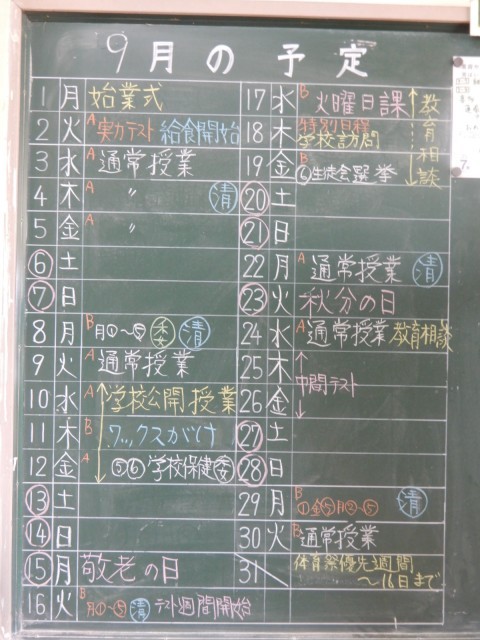 9月の予定
1 月 始業式
2 火 A 実力テスト 給食開始
3 水 A 通常授業
4 木 A 〃 清
5 金 A 〃
6 土
7 日
8 月 B 月①〜⑤ 委 清
9 火 A 通常授業
10 水 A 学校公開授業
11 木 B ワックスがけ
12 金 A ⑤⑥ 学校保健委
13 土
14 日
15 月 敬老の日
16 火 B 月①〜⑤ 清 テスト週間開始
17 水 B 火曜日課 教育相談
18 木 特別日程
学校訪問
19 金 B ⑥生徒会選挙
20 土
21 日
22 月 A 通常授業 清
23 火 秋分の日
24 水 A 通常授業 教育相談
25 木
中間テスト
26 金
27 土
28 日
29 月 B ①金⑤月②〜⑤ 清
30 火 B 通常授業
31 体育祭優先週間
〜16日まで